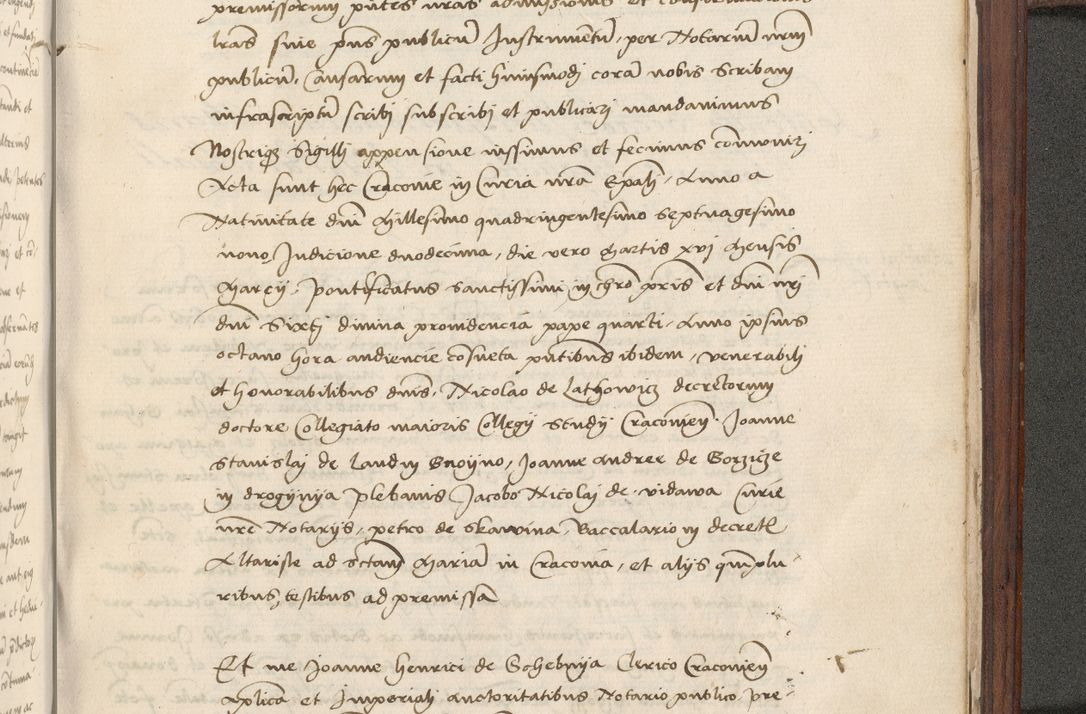 premissorum pntes nras admissionis et confirmacionis
lras sive pns publicu Instrumentu, per Notariu nrm
publicu, Causarum et facti huiusmodj cora nobis Scribam
infrascriptu scribj subscribj et publicarj mandauimus
Nostriqz Sigillj appensione iussimus et fecimus comuniri
Acta sunt hec Cracovie in Curia nra Epali, Anno a
Natiuitate dnj Millesimo quadringentesimo Septuagesimo
nono, Indicione duodecima, die vero Martis xvj Mensis
Marcij, Pontificatus Sanctissimi in chro pris et dnj nrj
dnj Sixtj diuina prouidencia pape quarti, Anno ipsius
octauo hora audiencie cosueta pntibus ibidem, venerabilj
et honorabilibus dnis, Nicolao de Lathowicz decretorum
doctore Collegiato maioris Collegij Studij Cracovien, Joanne
Stanislaj de Landin Gnoyno, Joanne Andree de Gorzicze
in drogynija plebanis Jacobo Nicolaj de vidawa Curie
nre Notarijs, petro de Skawina, Baccalario in decret
Altariste ad Sctam Maria in Cracovia, et alijs qmplu
ribus testibus ad premissa
Et me Joanne Henrici de Gohebnija Clerico Cracovien
Aplica et Imperiali auctoritatibus Notario publico pre